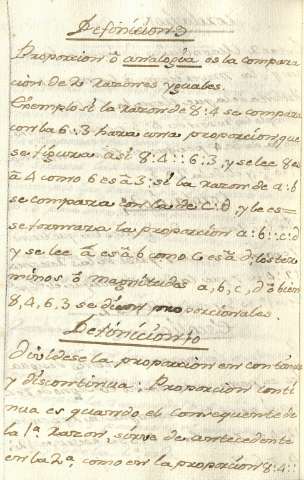 Definicion 9
Proporcion ò analogia es la compara
cion de 2 razones yguales.
Exemplo si la razon de 8:4 se compara
con la 6:3 hara una proporcion, que
se figura asi 8:4::6:3, y se lee 8 es
à 4 como 6 es à 3: si la razon de a:b
se compara con la de c:d, y le es =
se formara la proporcion a:b::c:d
y se lee à es à b como c es à d, los ter
minos ò magnitudes a, b, c, d ò bien
8, 4, 6, 3 se dicen proporcionales.
Definicion 10
Dividese la proporcion en continua
y discontinua: Proporcion conti
nua es quando el consequente de
la 1ª razon, sirve de antecedente
en la 2ª como en la proporcion 8:4::